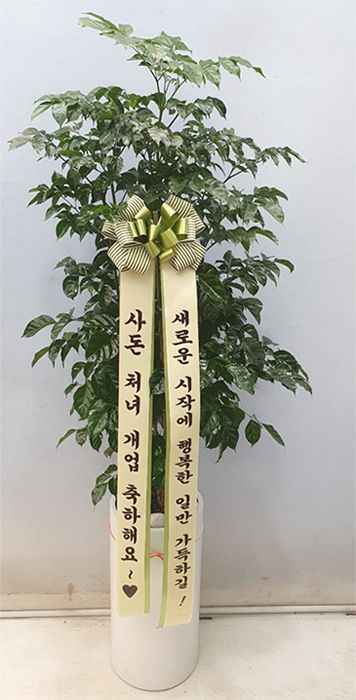 사돈 처녀 개업 축하해요~♥
새로운 시작에 행복한 일만 가득하길!